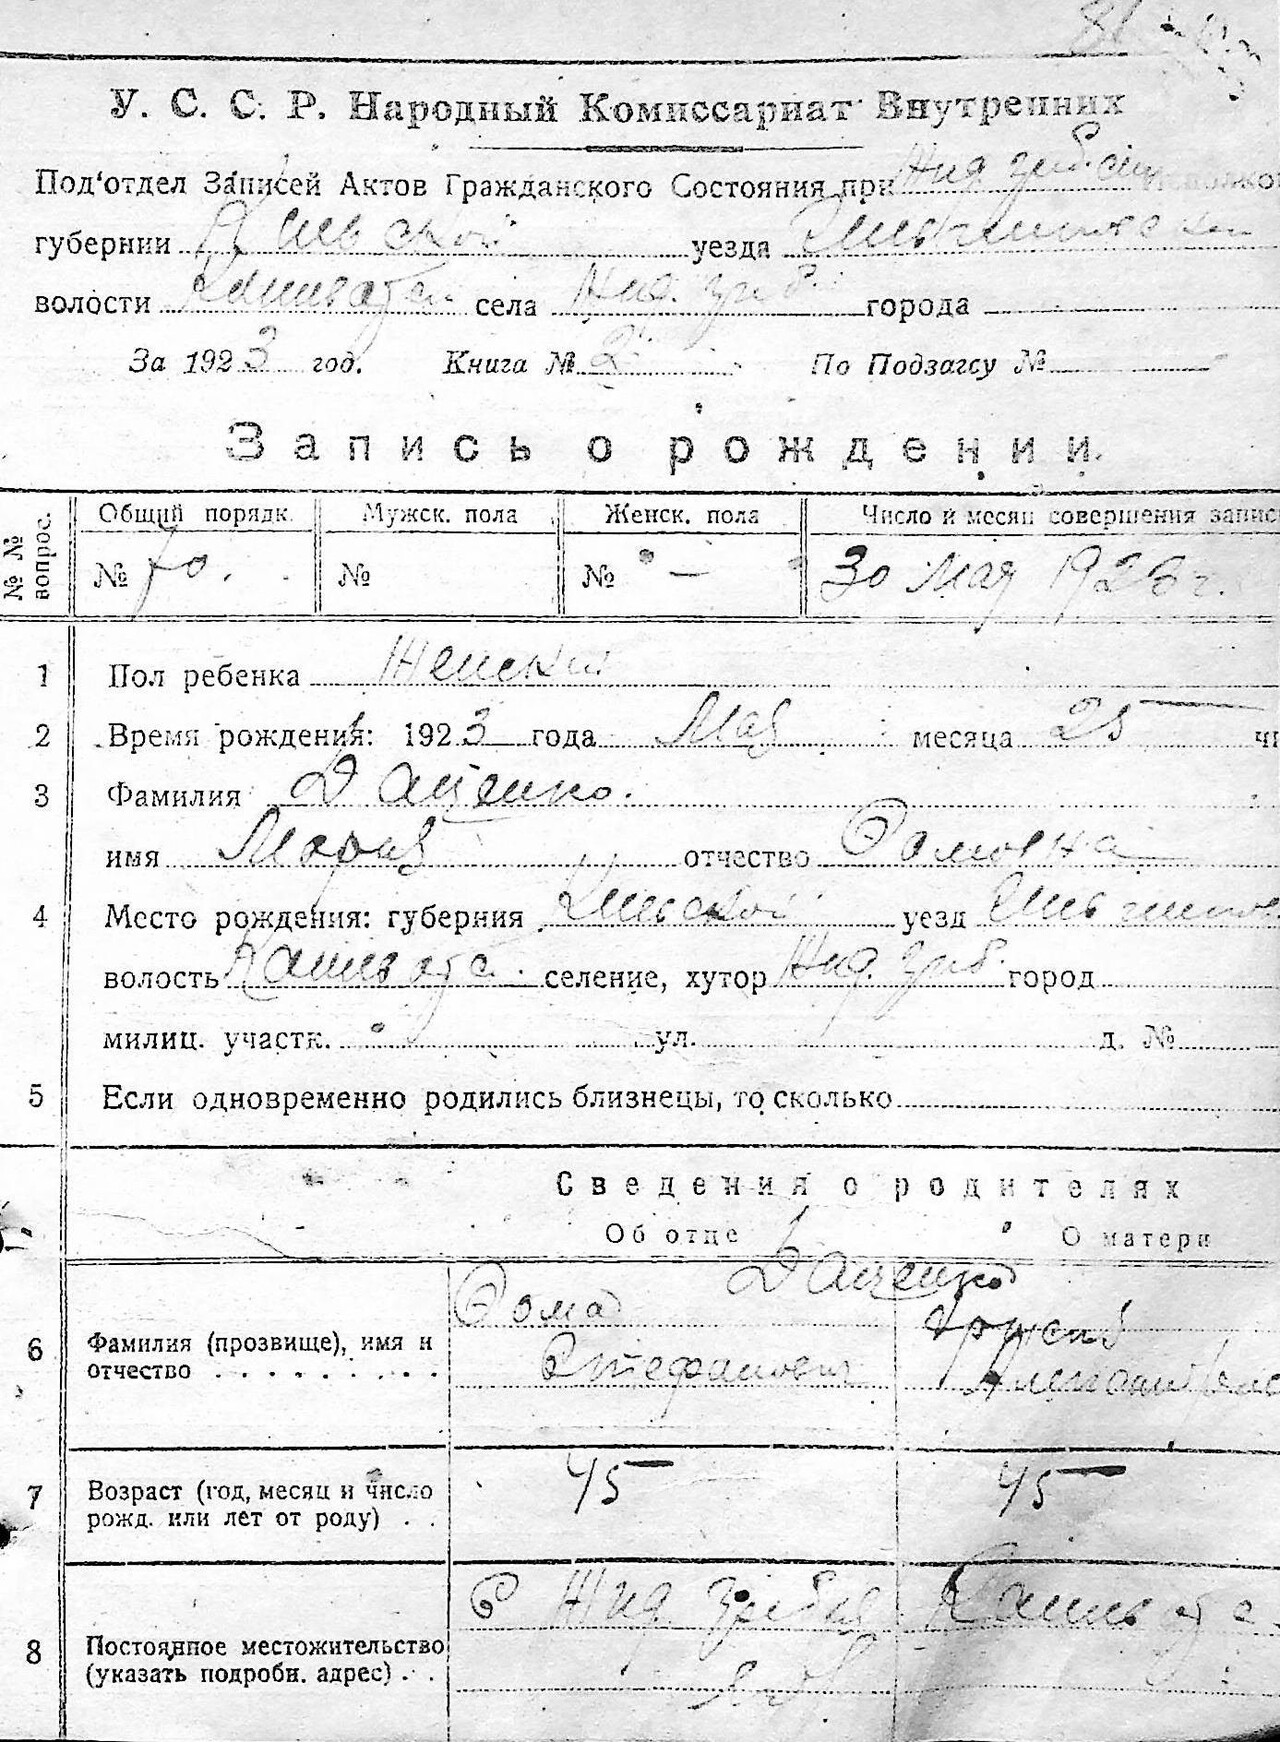 У. С. С. Р. Народный Комиссариат Внутренних
Под'отдел Записей Актов Гражданского Состояния при Жид. Исполко
губернии Киевской уезда
волости села Жид. города
За 1923 год. Книга № 2 По Подзагсу №
Запись о рождении.
№ № вопрос. Общий порядк. Мужск. пола Женск. пола Число и месяц совершения запис
№ 70. № № — 30 Мая 1923 г.
1 Пол ребенка Женский
2 Время рождения: 1923 года Мая месяца 25 чи
3 Фамилия Даценко.
имя Мария отчество Фомовна
4 Место рождения: губерния Киевской уезд
волость селение, хутор Жид. город
милиц. участк. ул. д. №
5 Если одновременно родились близнецы, то сколько
Сведения о родителях
Об отце О матери
Даценко
Фома
6 Фамилия (прозвище), имя и отчество
Стефанович
7 Возраст (год, месяц и число рожд. или лет от роду) 45 45
8 Постоянное местожительство (указать подробн. адрес) С Жид.